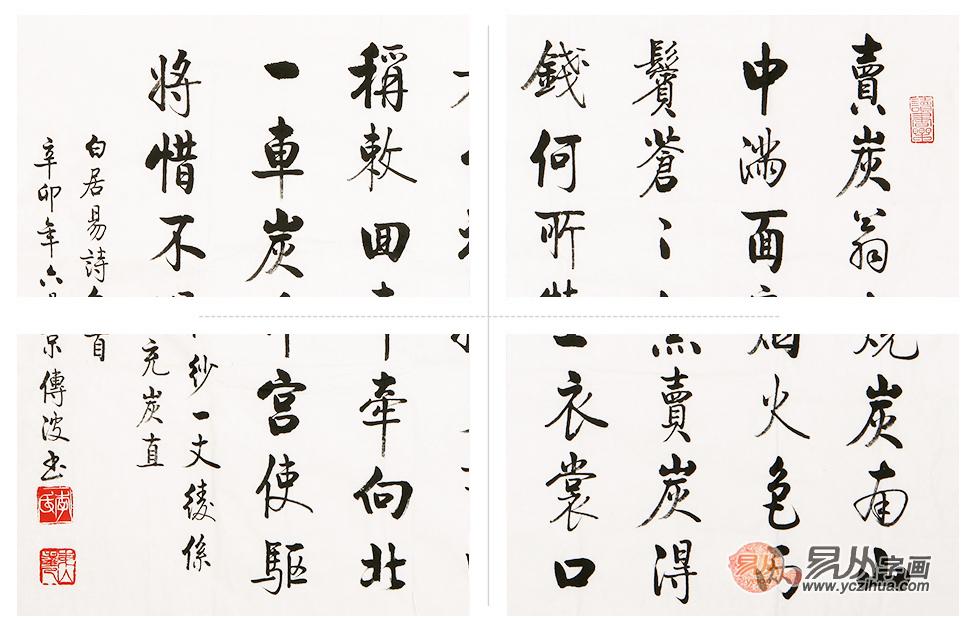 賣炭翁 燒炭南山
中滿面 烟火色兩
鬢蒼〻 黑賣炭得
錢何所 衣裳口
稱敕回 牽向北
一車炭 宮使驅
將惜不
紗一丈綾係
充炭直
白居易詩 首
辛卯年六月 京傳波书
易从字画
www.yczihua.com